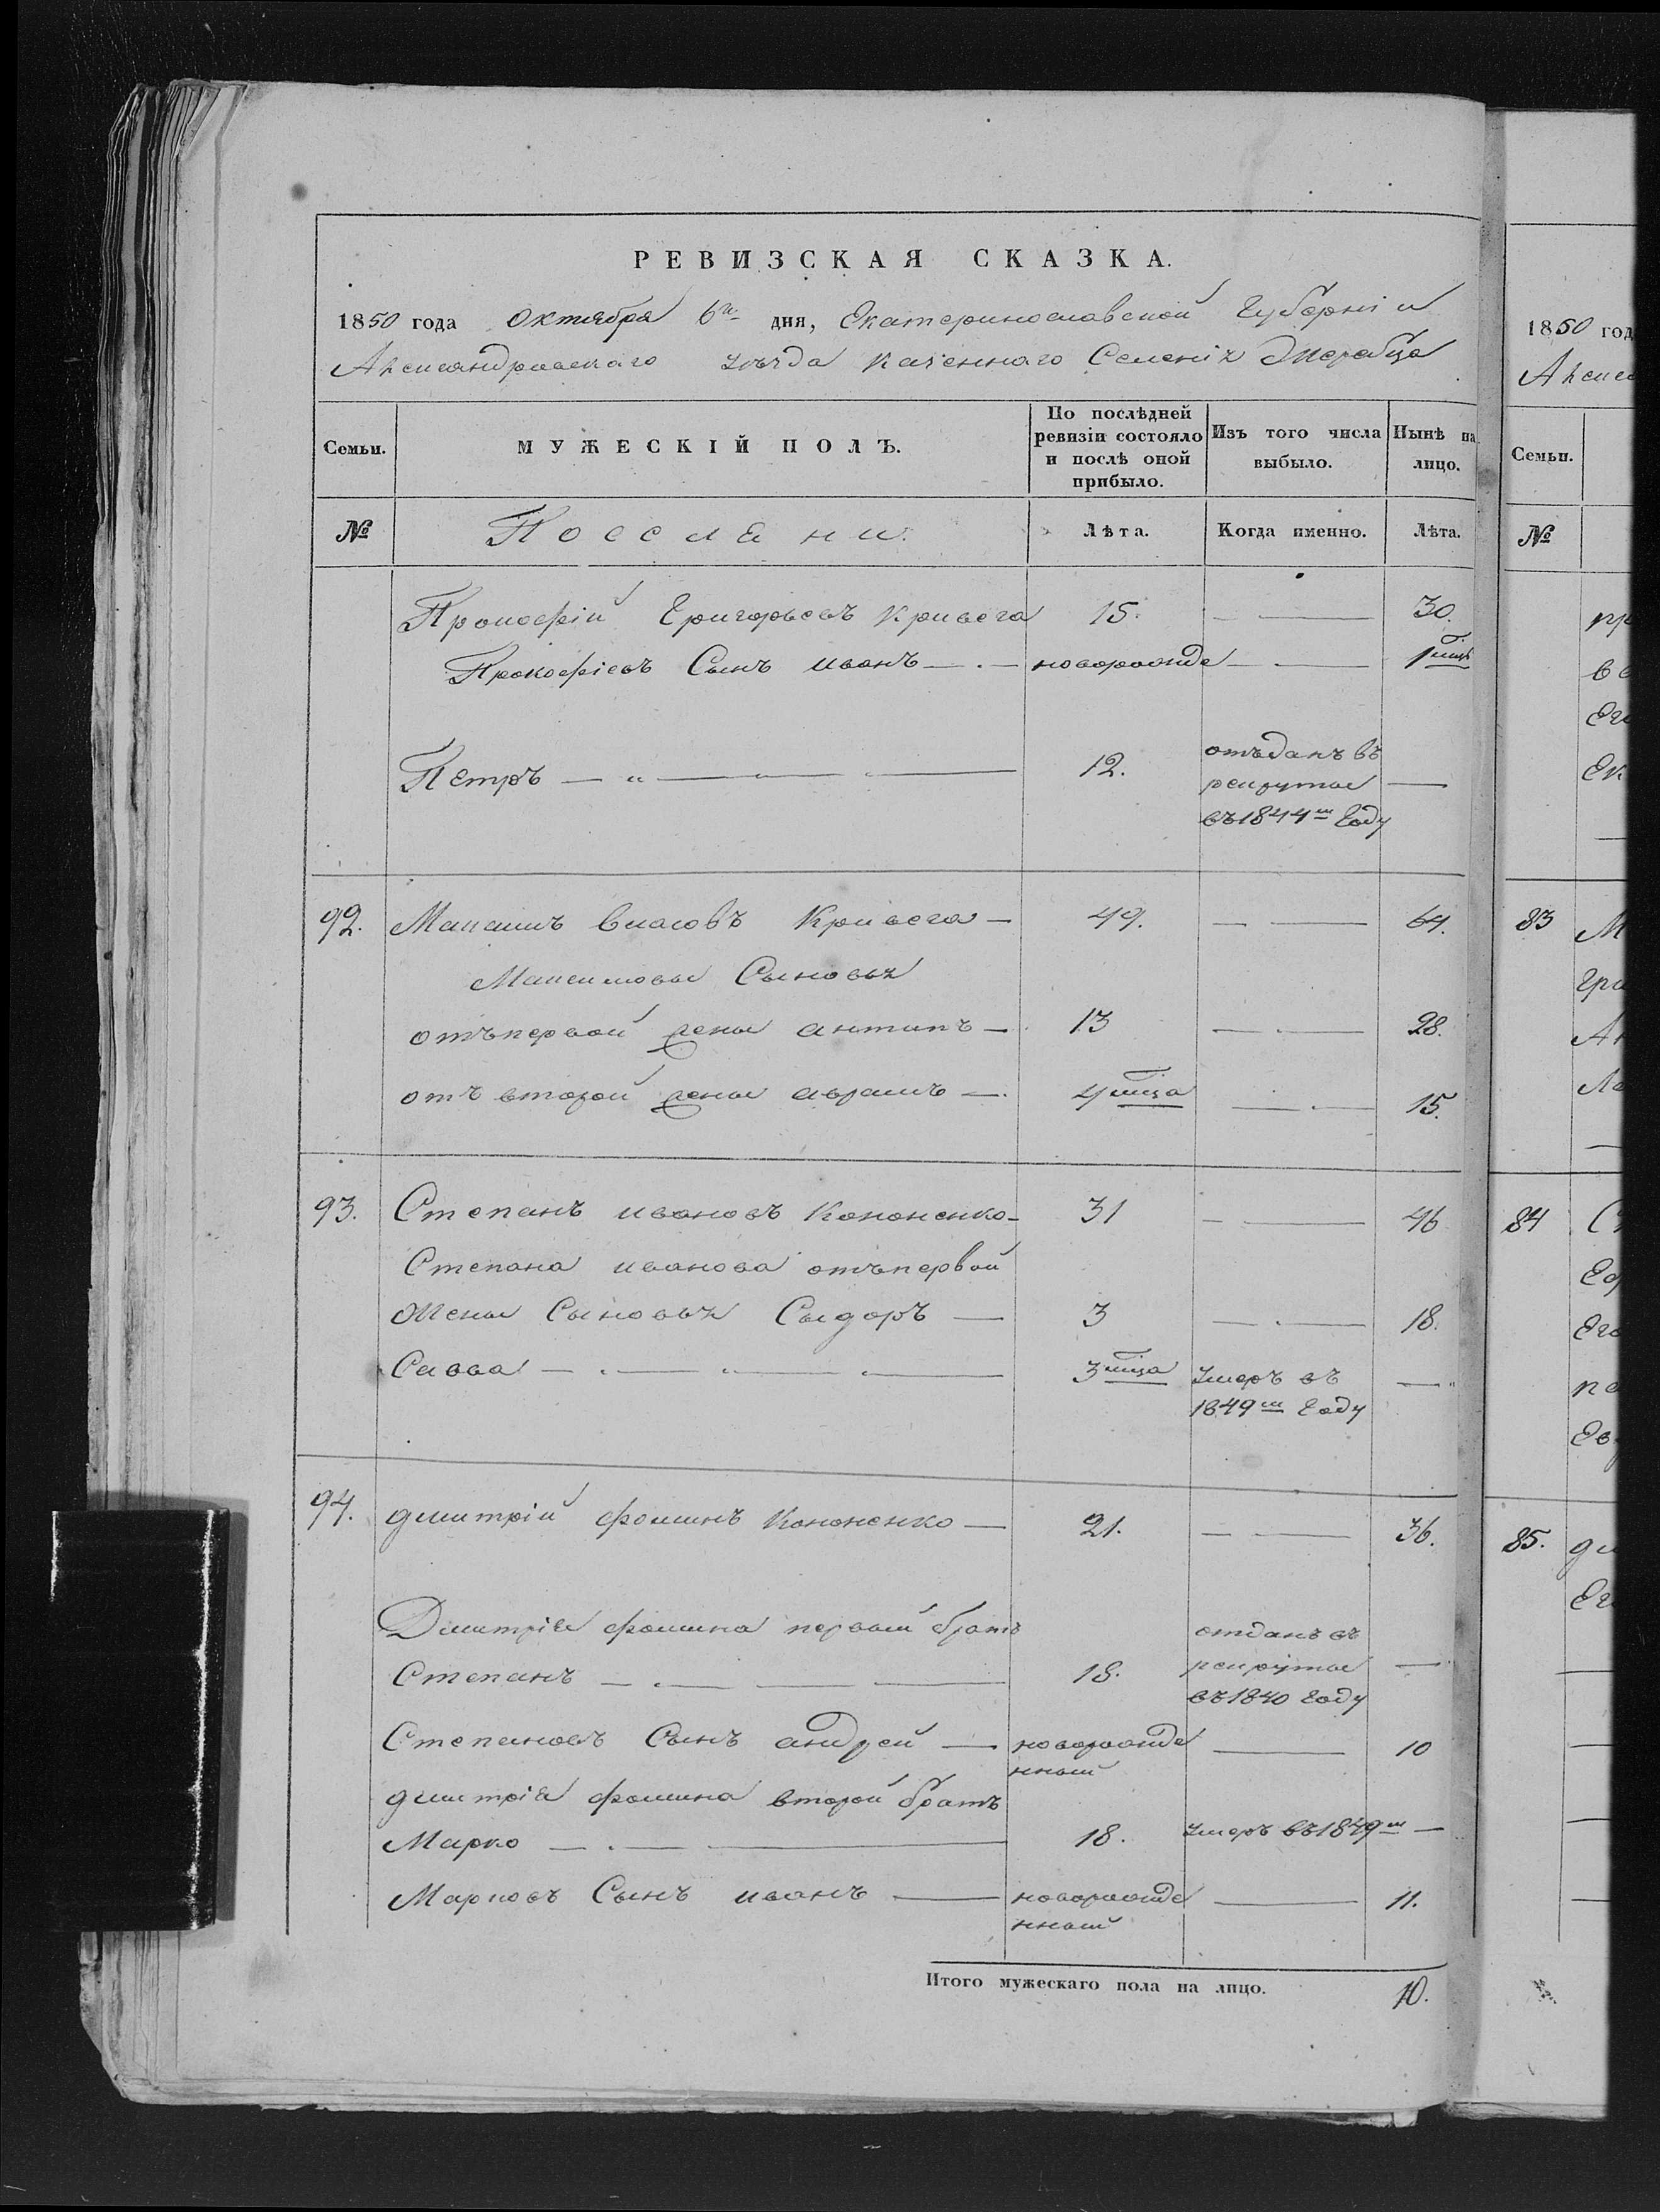 РЕВИЗСКАЯ СКАЗКА.
1850 года Октября 6го дня, Екатеринославской Губерніи
Александровскаго уѣзда Казеннаго Селенія Жеребца
Семьи.
МУЖЕСКІЙ ПОЛЪ.
По послѣдней ревизіи состояло и послѣ оной прибыло.
Изъ того числа выбыло.
Нынѣ на лицо.
№
Поселяни.
Лѣта.
Когда именно.
Лѣта.
Прокофій Григорьевъ Кривега 15. — 30.
Прокофіевъ Сынъ иванъ — новорожде — 1 мцъ
Петръ — " — 12. отъданъ въ рекруты въ 1844м Году —
92. Максимъ власовъ Кривега — 49. — 64.
Максимовы Сыновья
отъ первой жены антипъ — 13 — 28.
отъ второй жены аврамъ — 4 мца — 15.
93. Степанъ ивановъ Кононенко — 31 — 46
Степана иванова отъ первой
Жены Сыновья Сыдоръ — 3 — 18.
Савва — 3 мца умеръ въ 1849м Году —
94. дмитрій фоминъ Кононенко — 21. — 36.
Дмитрія фомина первый братъ
Степанъ — 18. отданъ въ рекруты въ 1840 Году —
Степановъ Сынъ андрей — новорожденный — 10
дмитрія фомина второй братъ
Марко — 18. умеръ въ 1849м —
Марковъ Сынъ иванъ — новорожденный — 11.
Итого мужескаго пола на лицо. 10.
1850 год
Алекса
Семьи.
№
83
84
85.